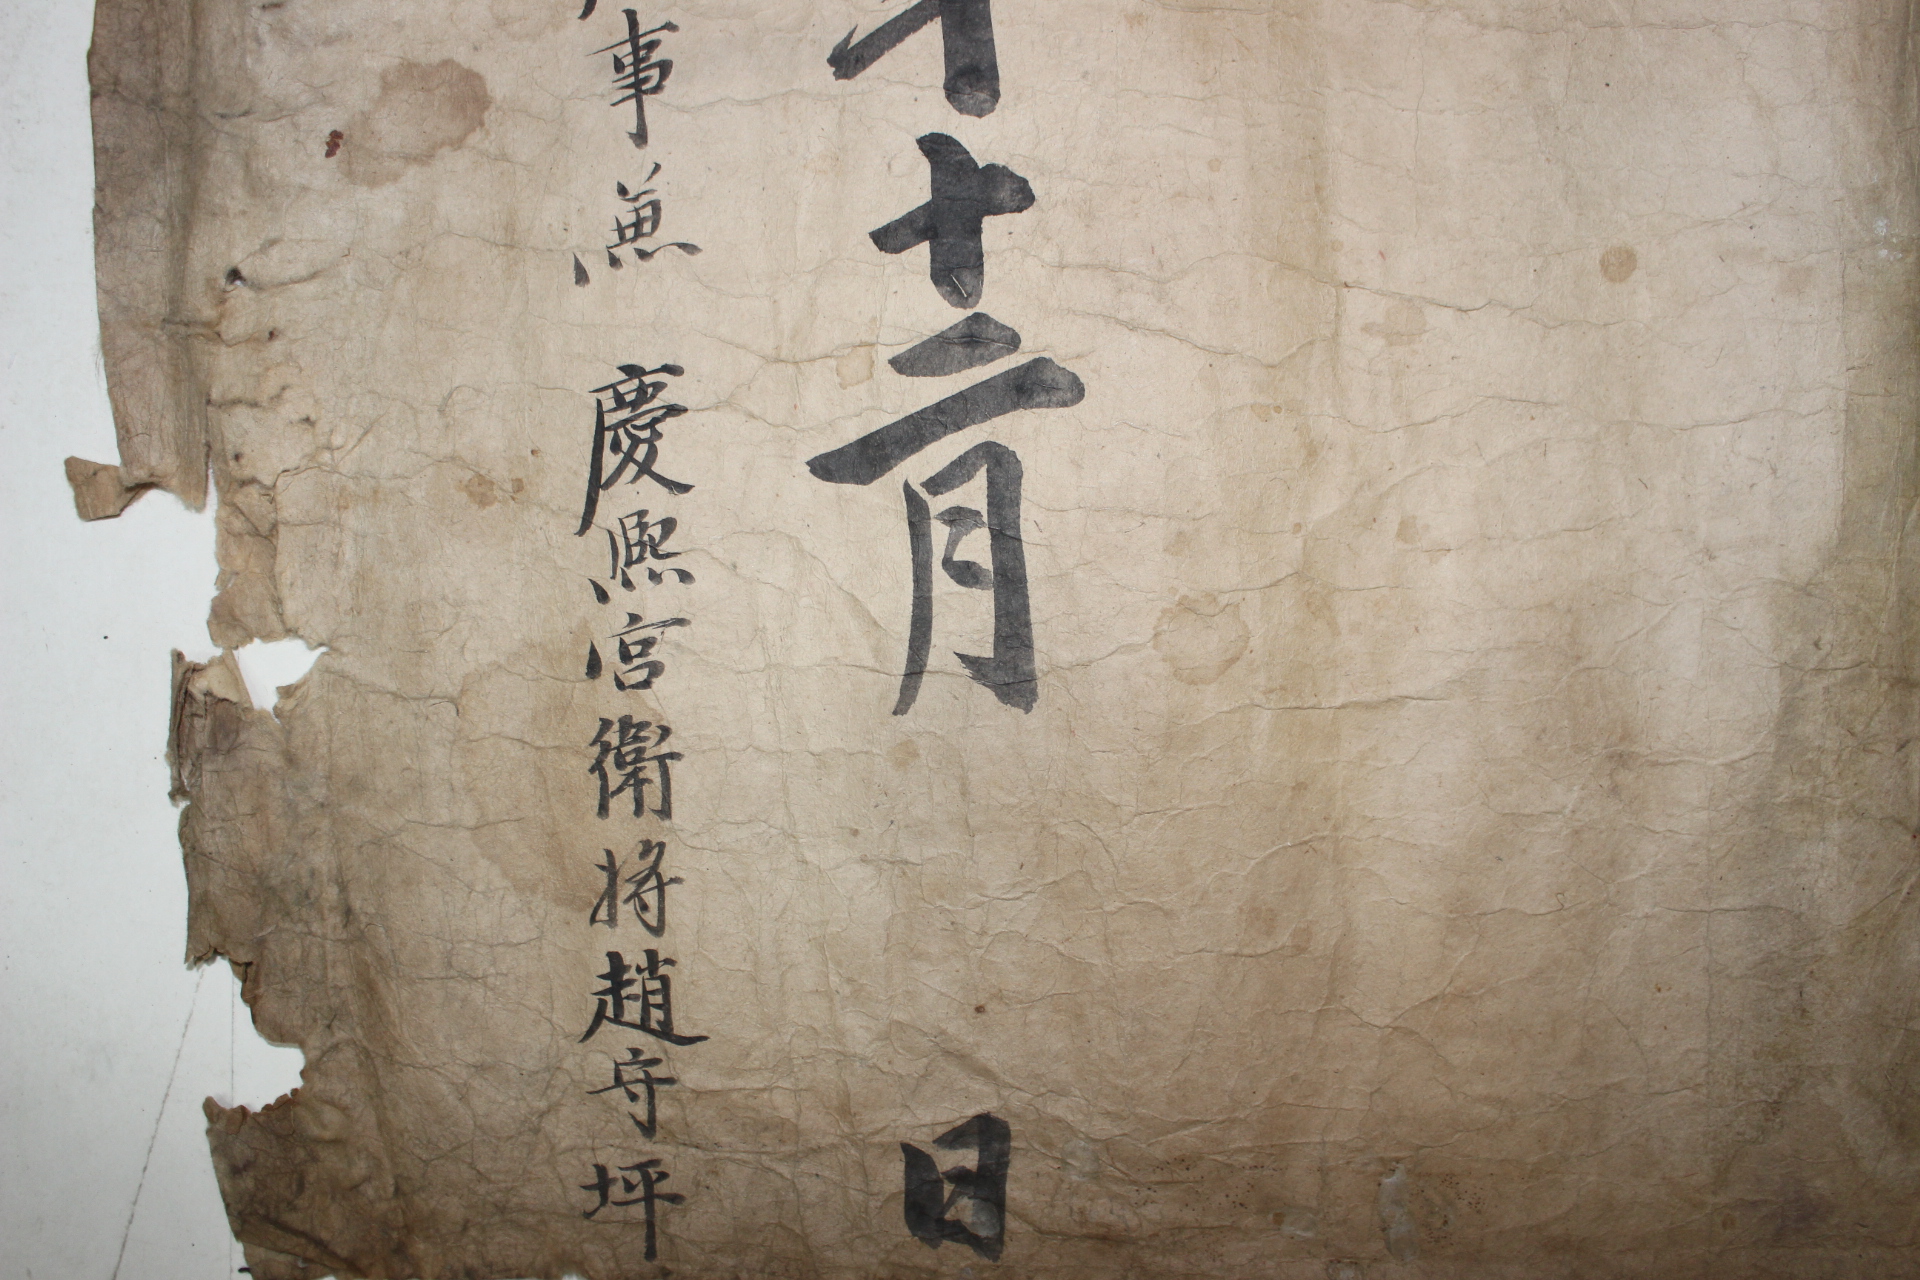 十二月 日
事兼 慶熙宮衛將趙守坪